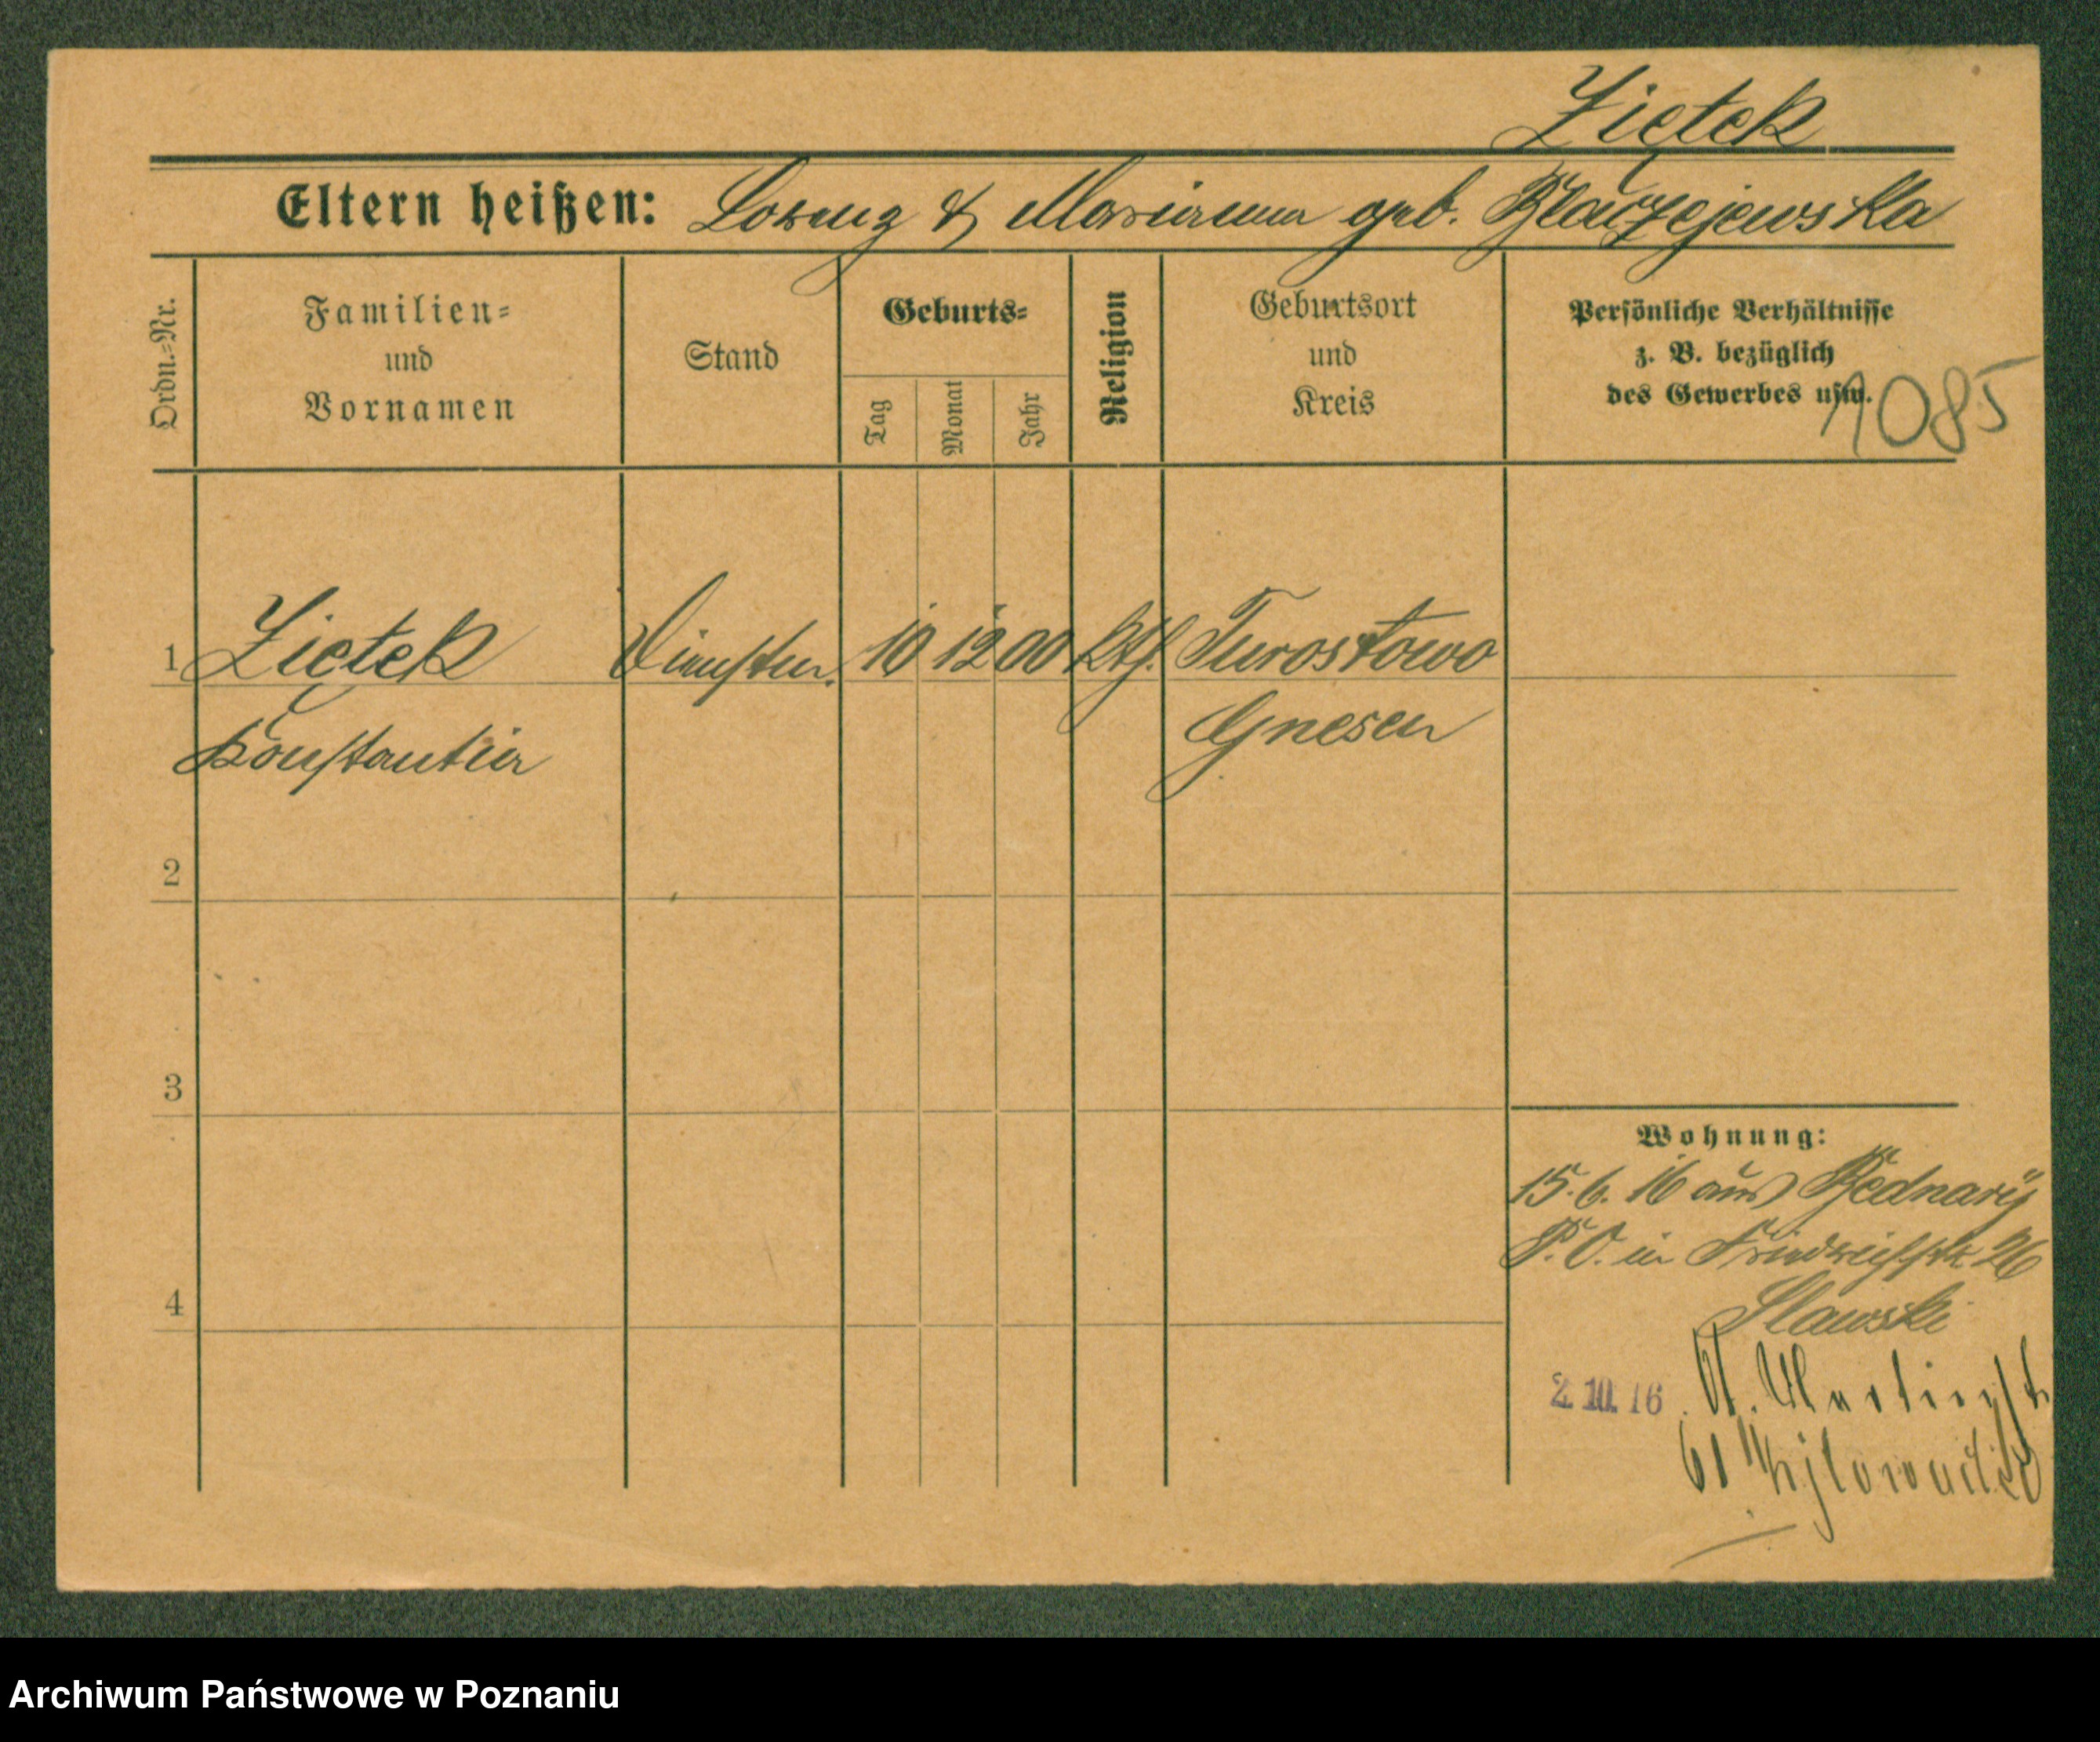 Ziętek
Eltern heißen: Lorenz & Marianna geb. Błaczejewska
Ordn.-Nr.
Familien-
und
Vornamen
Stand
Geburts-
Tag
Monat
Jahr
Religion
Geburtsort
und
Kreis
Persönliche Verhältnisse
z. B. bezüglich
des Gewerbes usw.
1085
1 Ziętek Dienstm. 10 12 00 kth. Turostowo
Konstantin Gnesen
2
3
4
Wohnung:
15.6.16 aus Bednary
P. O. in Friedrichstr. 26
Slawski
2.10.16 St. Martinstr.
61
Archiwum Państwowe w Poznaniu